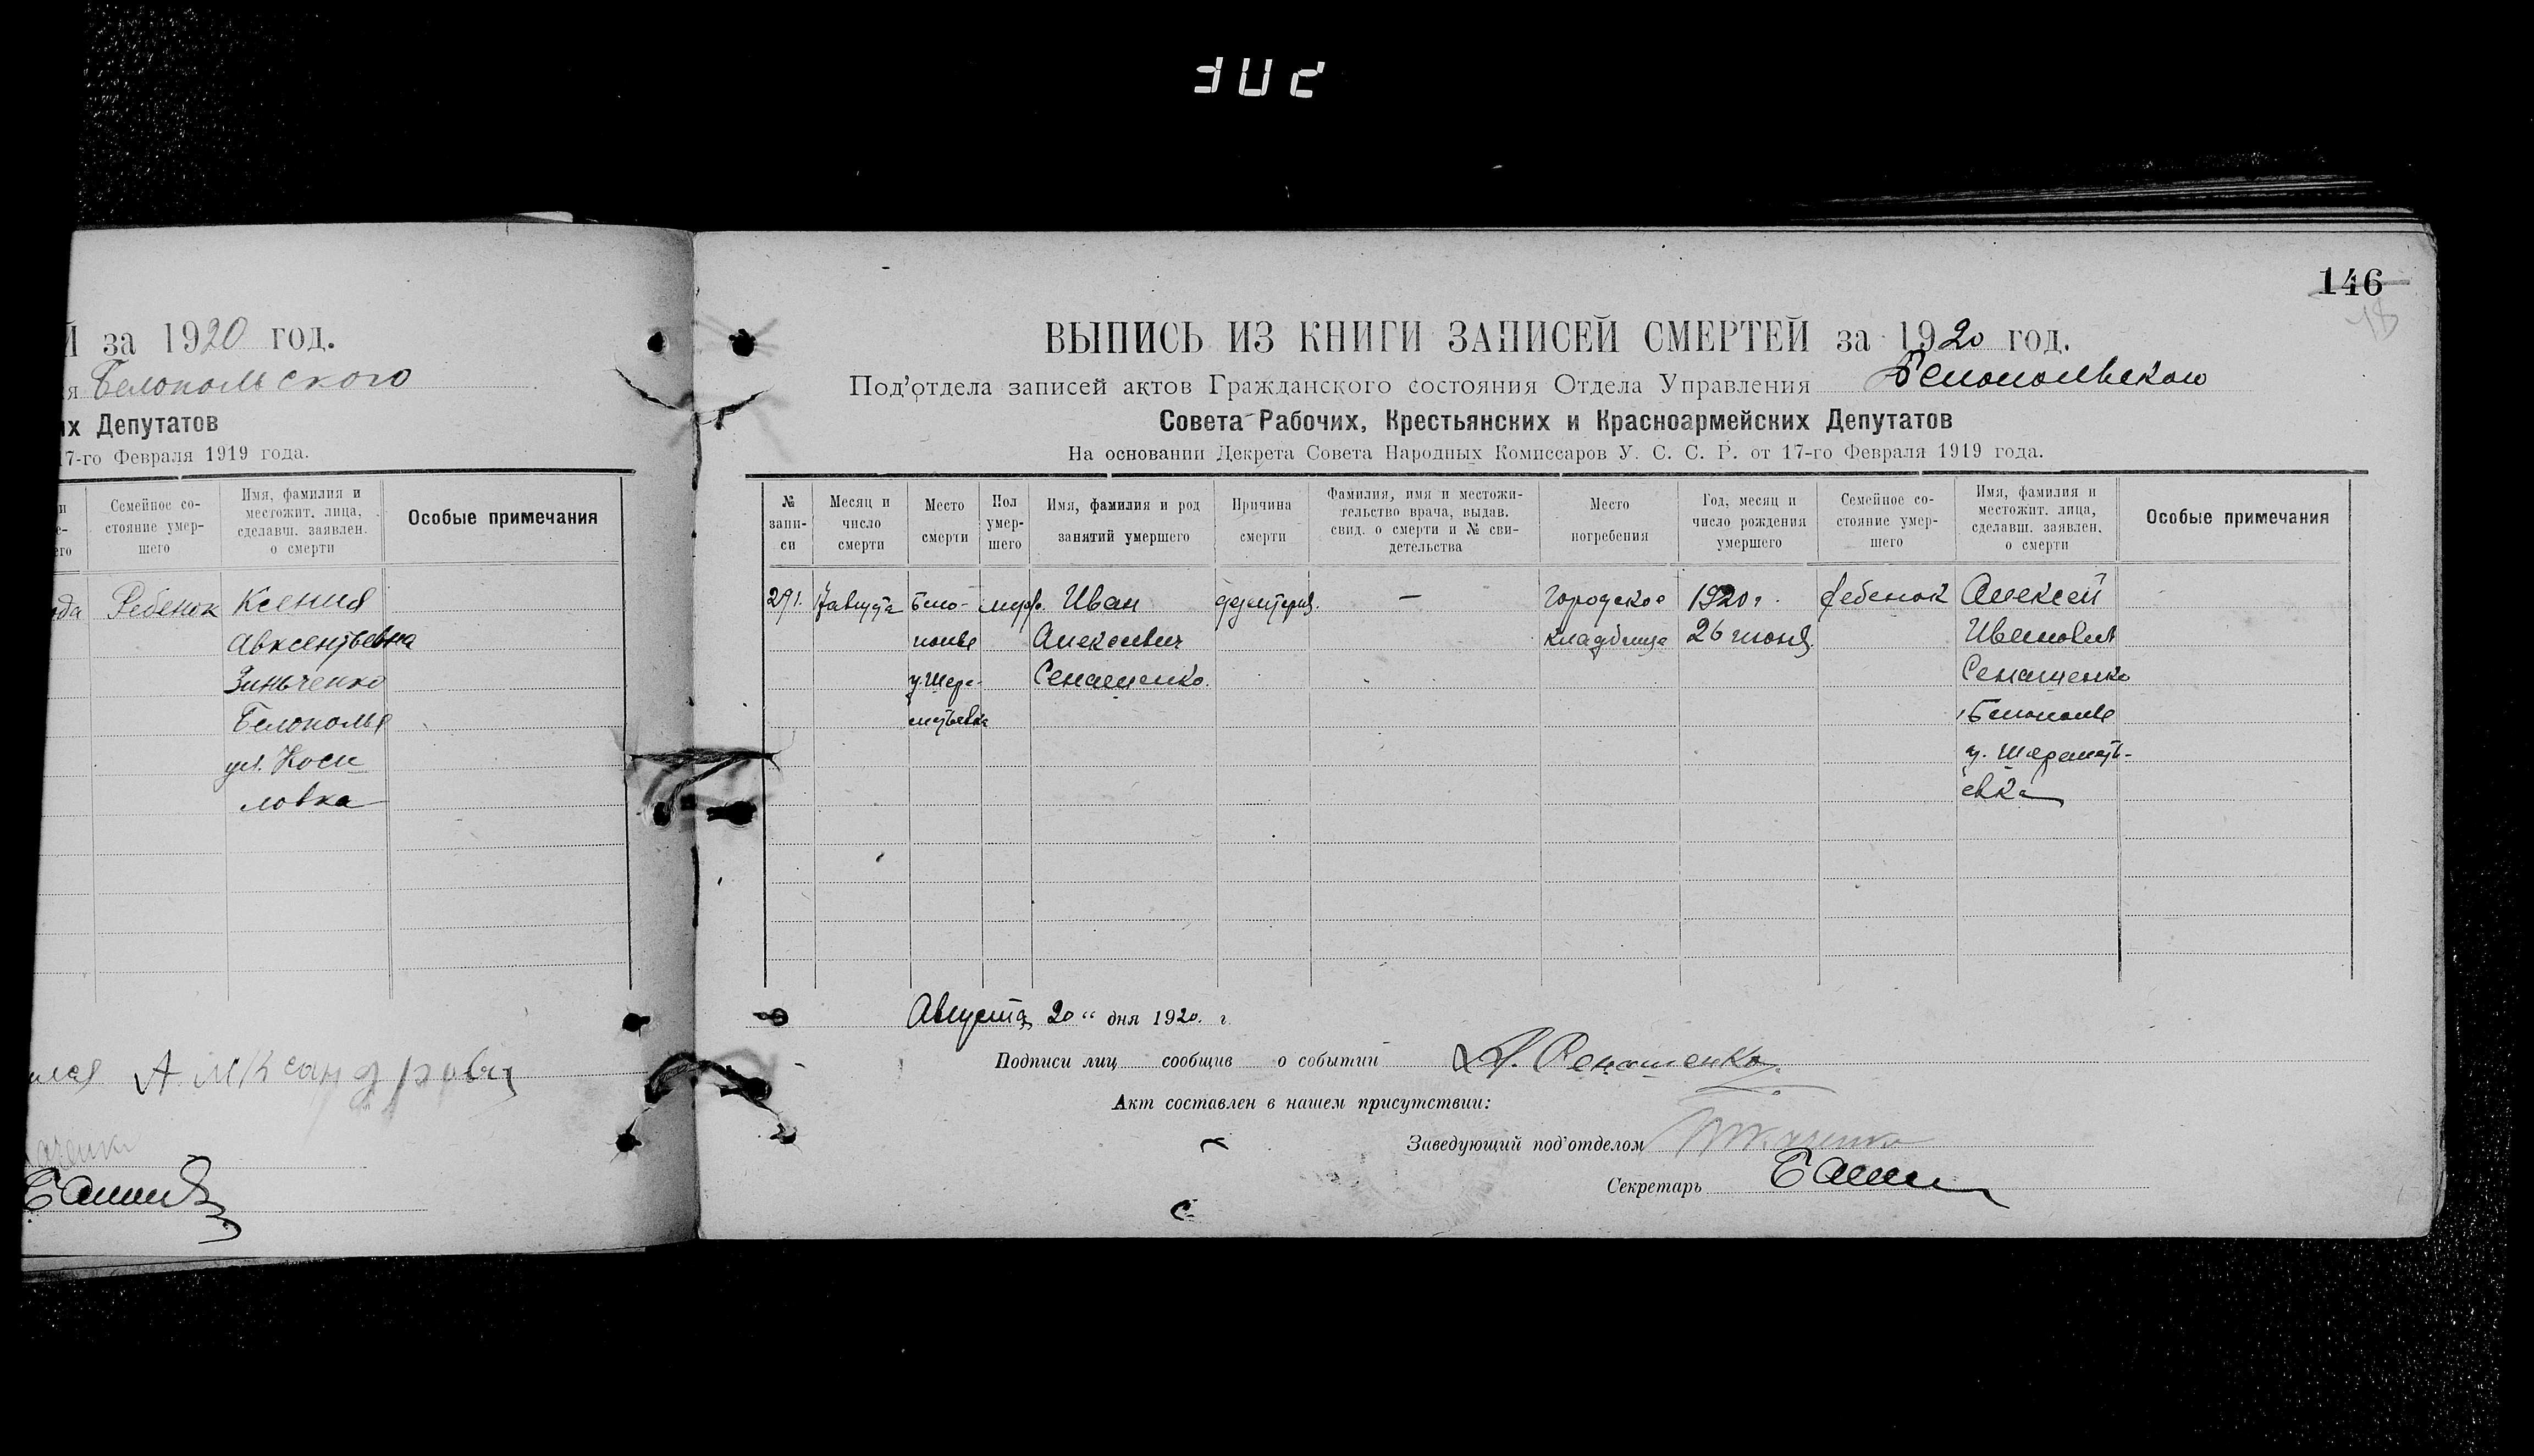 146
Й за 1920 год.
я Белопольского
их Депутатов
17-го Февраля 1919 года.
Семейное со-
стояние умер-
шего
Имя, фамилия и
местожит. лица,
сделавш. заявлен.
о смерти
Особые примечания
Ребенок Ксения
Авксентьевна
Зинченко
Белополье
ул. Коси
ловка
Александрова
ВЫПИСЬ ИЗ КНИГИ ЗАПИСЕЙ СМЕРТЕЙ за 1920 год.
Под'отдела записей актов Гражданского состояния Отдела Управления Белопольского
Совета Рабочих, Крестьянских и Красноармейских Депутатов
На основании Декрета Совета Народных Комиссаров У. С. С. Р. от 17-го Февраля 1919 года.
№
запи-
си
Месяц и
число
смерти
Место
смерти
Пол
умер-
шего
Имя, фамилия и род
занятий умершего
Причина
смерти
Фамилия, имя и местожи-
тельство врача, выдав.
свид. о смерти и № сви-
детельства
Место
погребения
Год, месяц и
число рождения
умершего
Семейное со-
стояние умер-
шего
Имя, фамилия и
местожит. лица,
сделавш. заявлен.
о смерти
Особые примечания
291. 7 августа Бело- Иван дезинтерия. — Городское 1920 г. ребенок Алексей
полье Алексеевич кладбище 26 июня Иванович
у. Шере- Сенащенко. Сенащенко
метьевка Белополье
у. Шереметь-
евка
Августа 20 " дня 1920. г
Подписи лиц сообщив о событии А. Сенащенко
Акт составлен в нашем присутствии:
Заведующий под'отделом
Секретарь